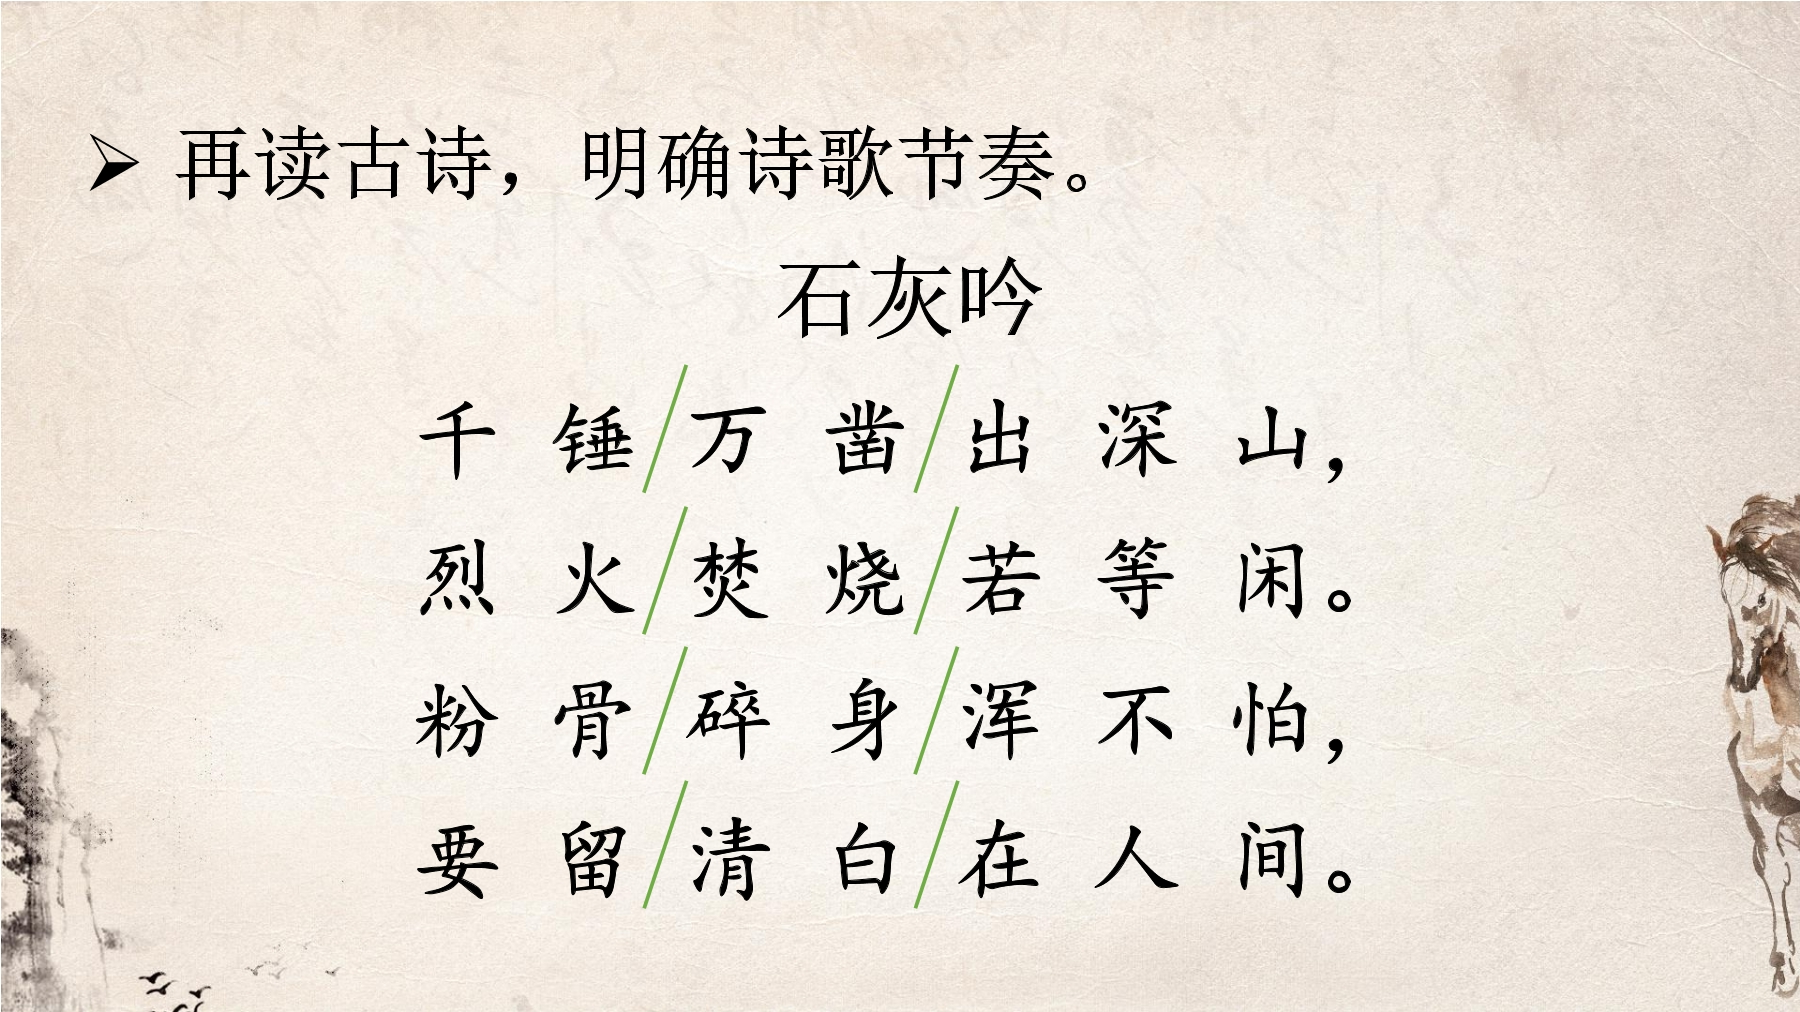 再读古诗，明确诗歌节奏。
石灰吟
千锤/万凿/出深山，
烈火/焚烧/若等闲。
粉骨/碎身/浑不怕，
要留/清白/在人间。